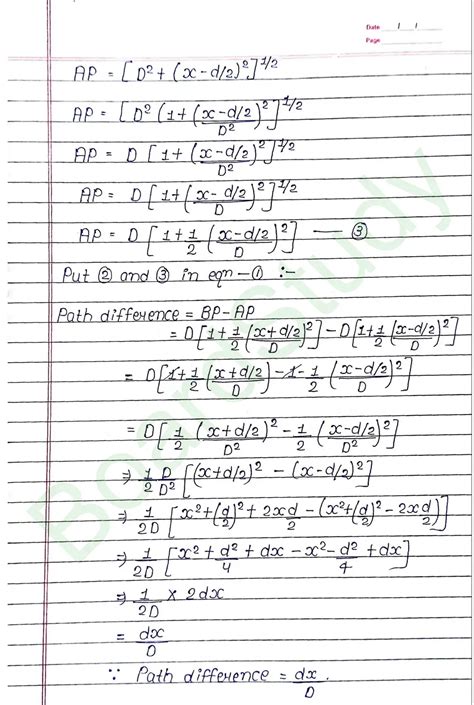 Date / /
Page
AP = [D² + (x-d/2)²]^1/2
AP = [D² (1 + (x-d/2)²/D²)]^1/2
AP = D [1 + (x-d/2)²/D²]^1/2
AP = D [1 + ((x-d/2)/D)²]^1/2
AP = D [1 + 1/2 ((x-d/2)/D)²] — ③
Put ② and ③ in eqn - ① :-
Path difference = BP - AP
= D[1 + 1/2 ((x+d/2)/D)²] - D[1 + 1/2 ((x-d/2)/D)²]
= D[1 + 1/2 ((x+d/2)/D) - 1 - 1/2 ((x-d/2)/D)²]
= D[1/2 (x+d/2)²/D² - 1/2 (x-d/2)²/D²]
⇒ 1/2 D/D² [(x+d/2)² - (x-d/2)²]
⇒ 1/2D [x² + (d/2)² + 2xd/2 - (x² + (d/2)² - 2xd/2)]
⇒ 1/2D [x² + d²/4 + dx - x² - d²/4 + dx]
⇒ 1/2D × 2dx
= dx/D
∵ Path difference = dx/D.
BoardStudy